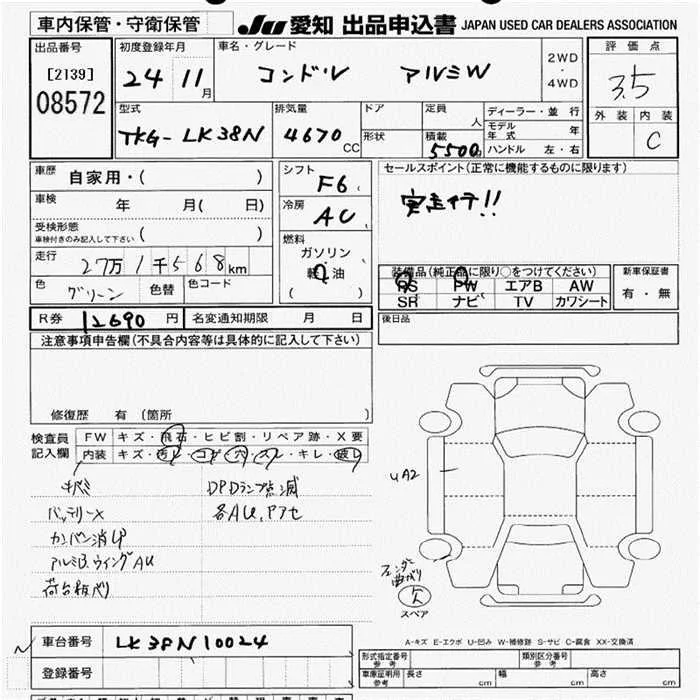 車内保管・守衛保管 JU 愛知 出品申込書 JAPAN USED CAR DEALERS ASSOCIATION
出品番号 初度登録年月 車名・グレード 2WD・4WD 評価点
[2139] 08572 24 11月 コンドル アルミW 3.5
型式 排気量 ドア 定員 人 ディーラー・並行 外装 内装
TKG-LK38N 4670cc 形状 積載 5500 モデル年式 年 C
ハンドル 左・右
車歴 自家用・( ) シフト F6 セールスポイント(正常に機能するものに限ります)
車検 年 月( 日) 冷房 AC 実走行!!
受検形態 車検付きのみ記入して下さい ( )
燃料 ガソリン・軽油 ( )
走行 27万1千568km
装備品(純正品に限り○をつけてください) 新車保証書
色 グリーン 色替 色コード PS PW エアB AW 有・無
SR ナビ TV カワシート
R券 12690円 名変通知期限 月 日 後日品
注意事項申告欄(不具合内容等は具体的に記入して下さい)
修復歴 有 (箇所 )
検査員記入欄 FW キズ・飛石・ヒビ割・リペア跡・X要
内装 キズ・汚レ・コゲ・穴・スレ・キレ・破レ
キズミ DPDランプ点滅
バッテリーX 各AU,Pアセ
カンバン消しP
アルミB.ウイングAU
荷台板バリ
UA2
フェンダー曲がり
欠
スペア
A-キズ E-エクボ U-凹み W-補修跡 S-サビ C-腐食 XX-交換済
車台番号 LK38N10024
登録番号
形式指定番号 参考 類別区分番号 参考
車庫証明用 参考 長さ cm 幅 cm 高さ cm